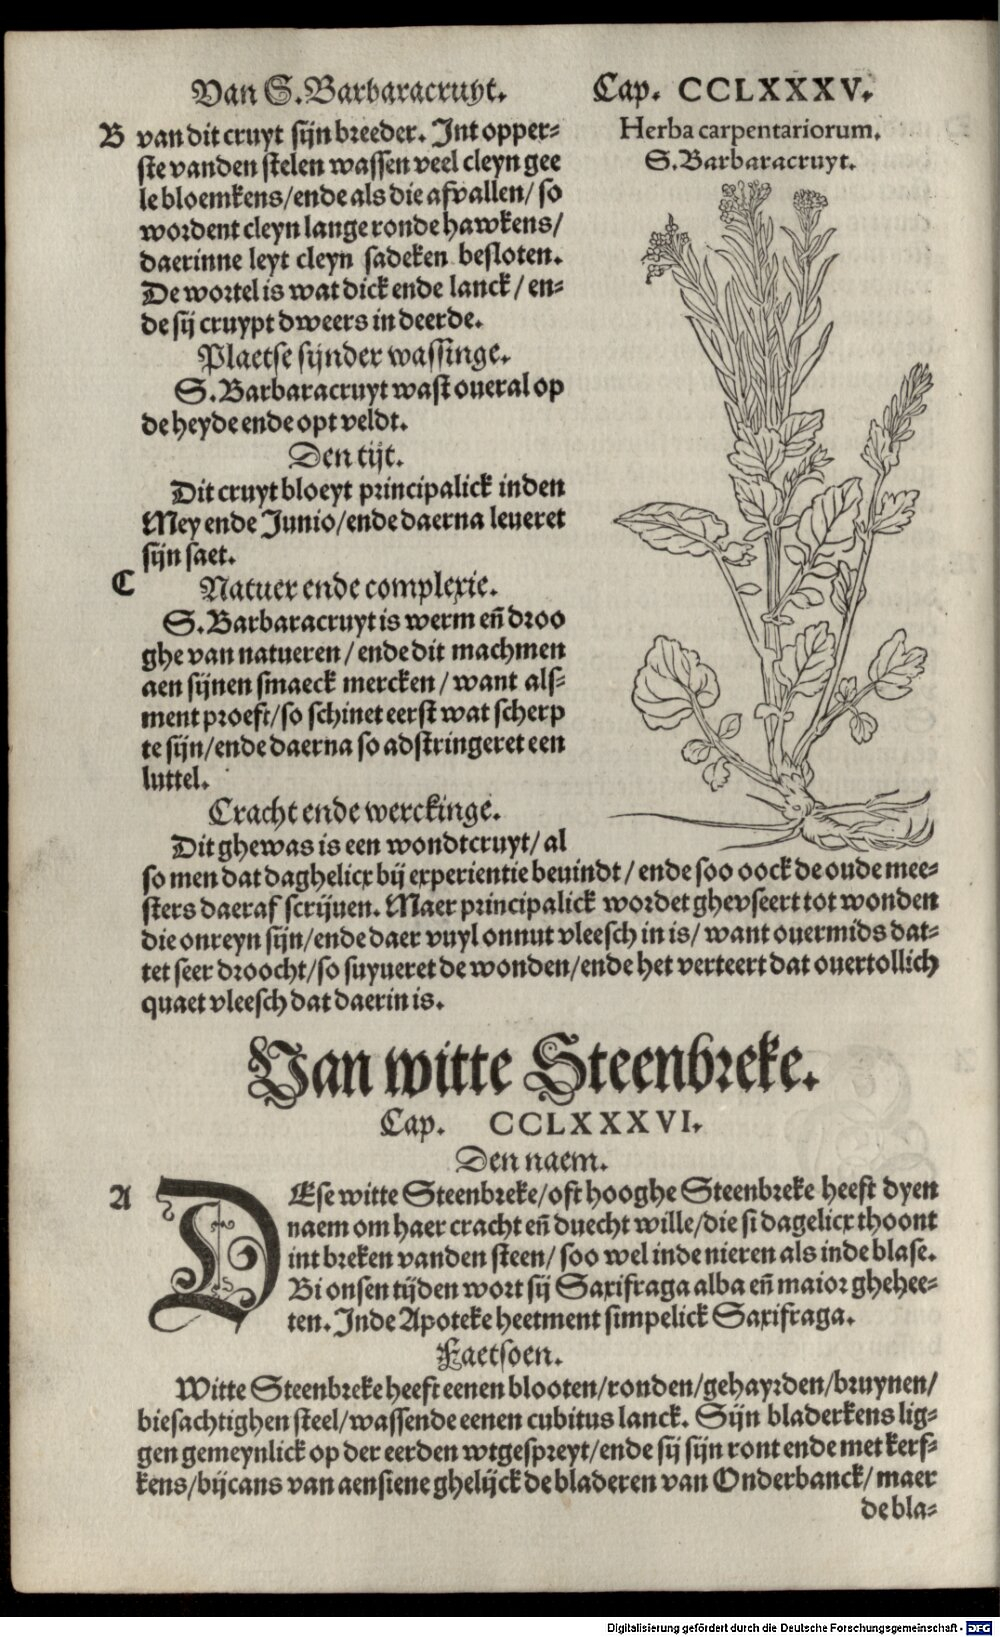 Van S. Barbaracruyt. Cap. CCLXXXV.
B van dit cruyt sijn breeder. Int opper-
ste vanden stelen wassen veel cleyn gee
le bloemkens/ende als die afvallen/so
wordent cleyn lange ronde hawkens/
daerinne leyt cleyn sadeken besloten.
De wortel is wat dick ende lanck/en-
de sij cruypt dweers in deerde.
Plaetse sijnder wassinge.
S. Barbaracruyt wast oueral op
de heyde ende opt veldt.
Den tijt.
Dit cruyt bloeyt principalick inden
Mey ende Junio/ende daerna leueret
sijn saet.
C Natuer ende complexie.
S. Barbaracruyt is werm eñ droo
ghe van natueren/ende dit machmen
aen sijnen smaeck mercken/want als-
ment proeft/so schinet eerst wat scherp
te sijn/ende daerna so adstringeret een
luttel.
Cracht ende werckinge.
Dit ghewas is een wondtcruyt/al
Herba carpentariorum.
S. Barbaracruyt.
so men dat daghelicx bij experientie beuindt/ende soo oock de oude mee-
sters daeraf scrijuen. Maer principalick wordet ghevseert tot wonden
die onreyn sijn/ende daer vuyl onnut vleesch in is/want ouermids dat-
tet seer droocht/so suyueret de wonden/ende het verteert dat ouertollich
quaet vleesch dat daerin is.
Van witte Steenbreke.
Cap. CCLXXXVI.
Den naem.
A DEse witte Steenbreke/oft hooghe Steenbreke heeft dyen
naem om haer cracht eñ duecht wille/die si dagelicx thoont
int breken vanden steen/soo wel inde nieren als inde blase.
Bi onsen tijden wort sij Saxifraga alba eñ maior ghehee-
ten. Inde Apoteke heetment simpelick Saxifraga.
Faetsoen.
Witte Steenbreke heeft eenen blooten/ronden/gehayrden/bruynen/
biesachtighen steel/wassende eenen cubitus lanck. Sijn bladerkens lig-
gen gemeynlick op der eerden wtgespreyt/ende sij sijn ront ende met kerf-
kens/bijcans van aensiene ghelijck de bladeren van Onderbanck/maer
de bla-
Digitalisierung gefördert durch die Deutsche Forschungsgemeinschaft - DFG